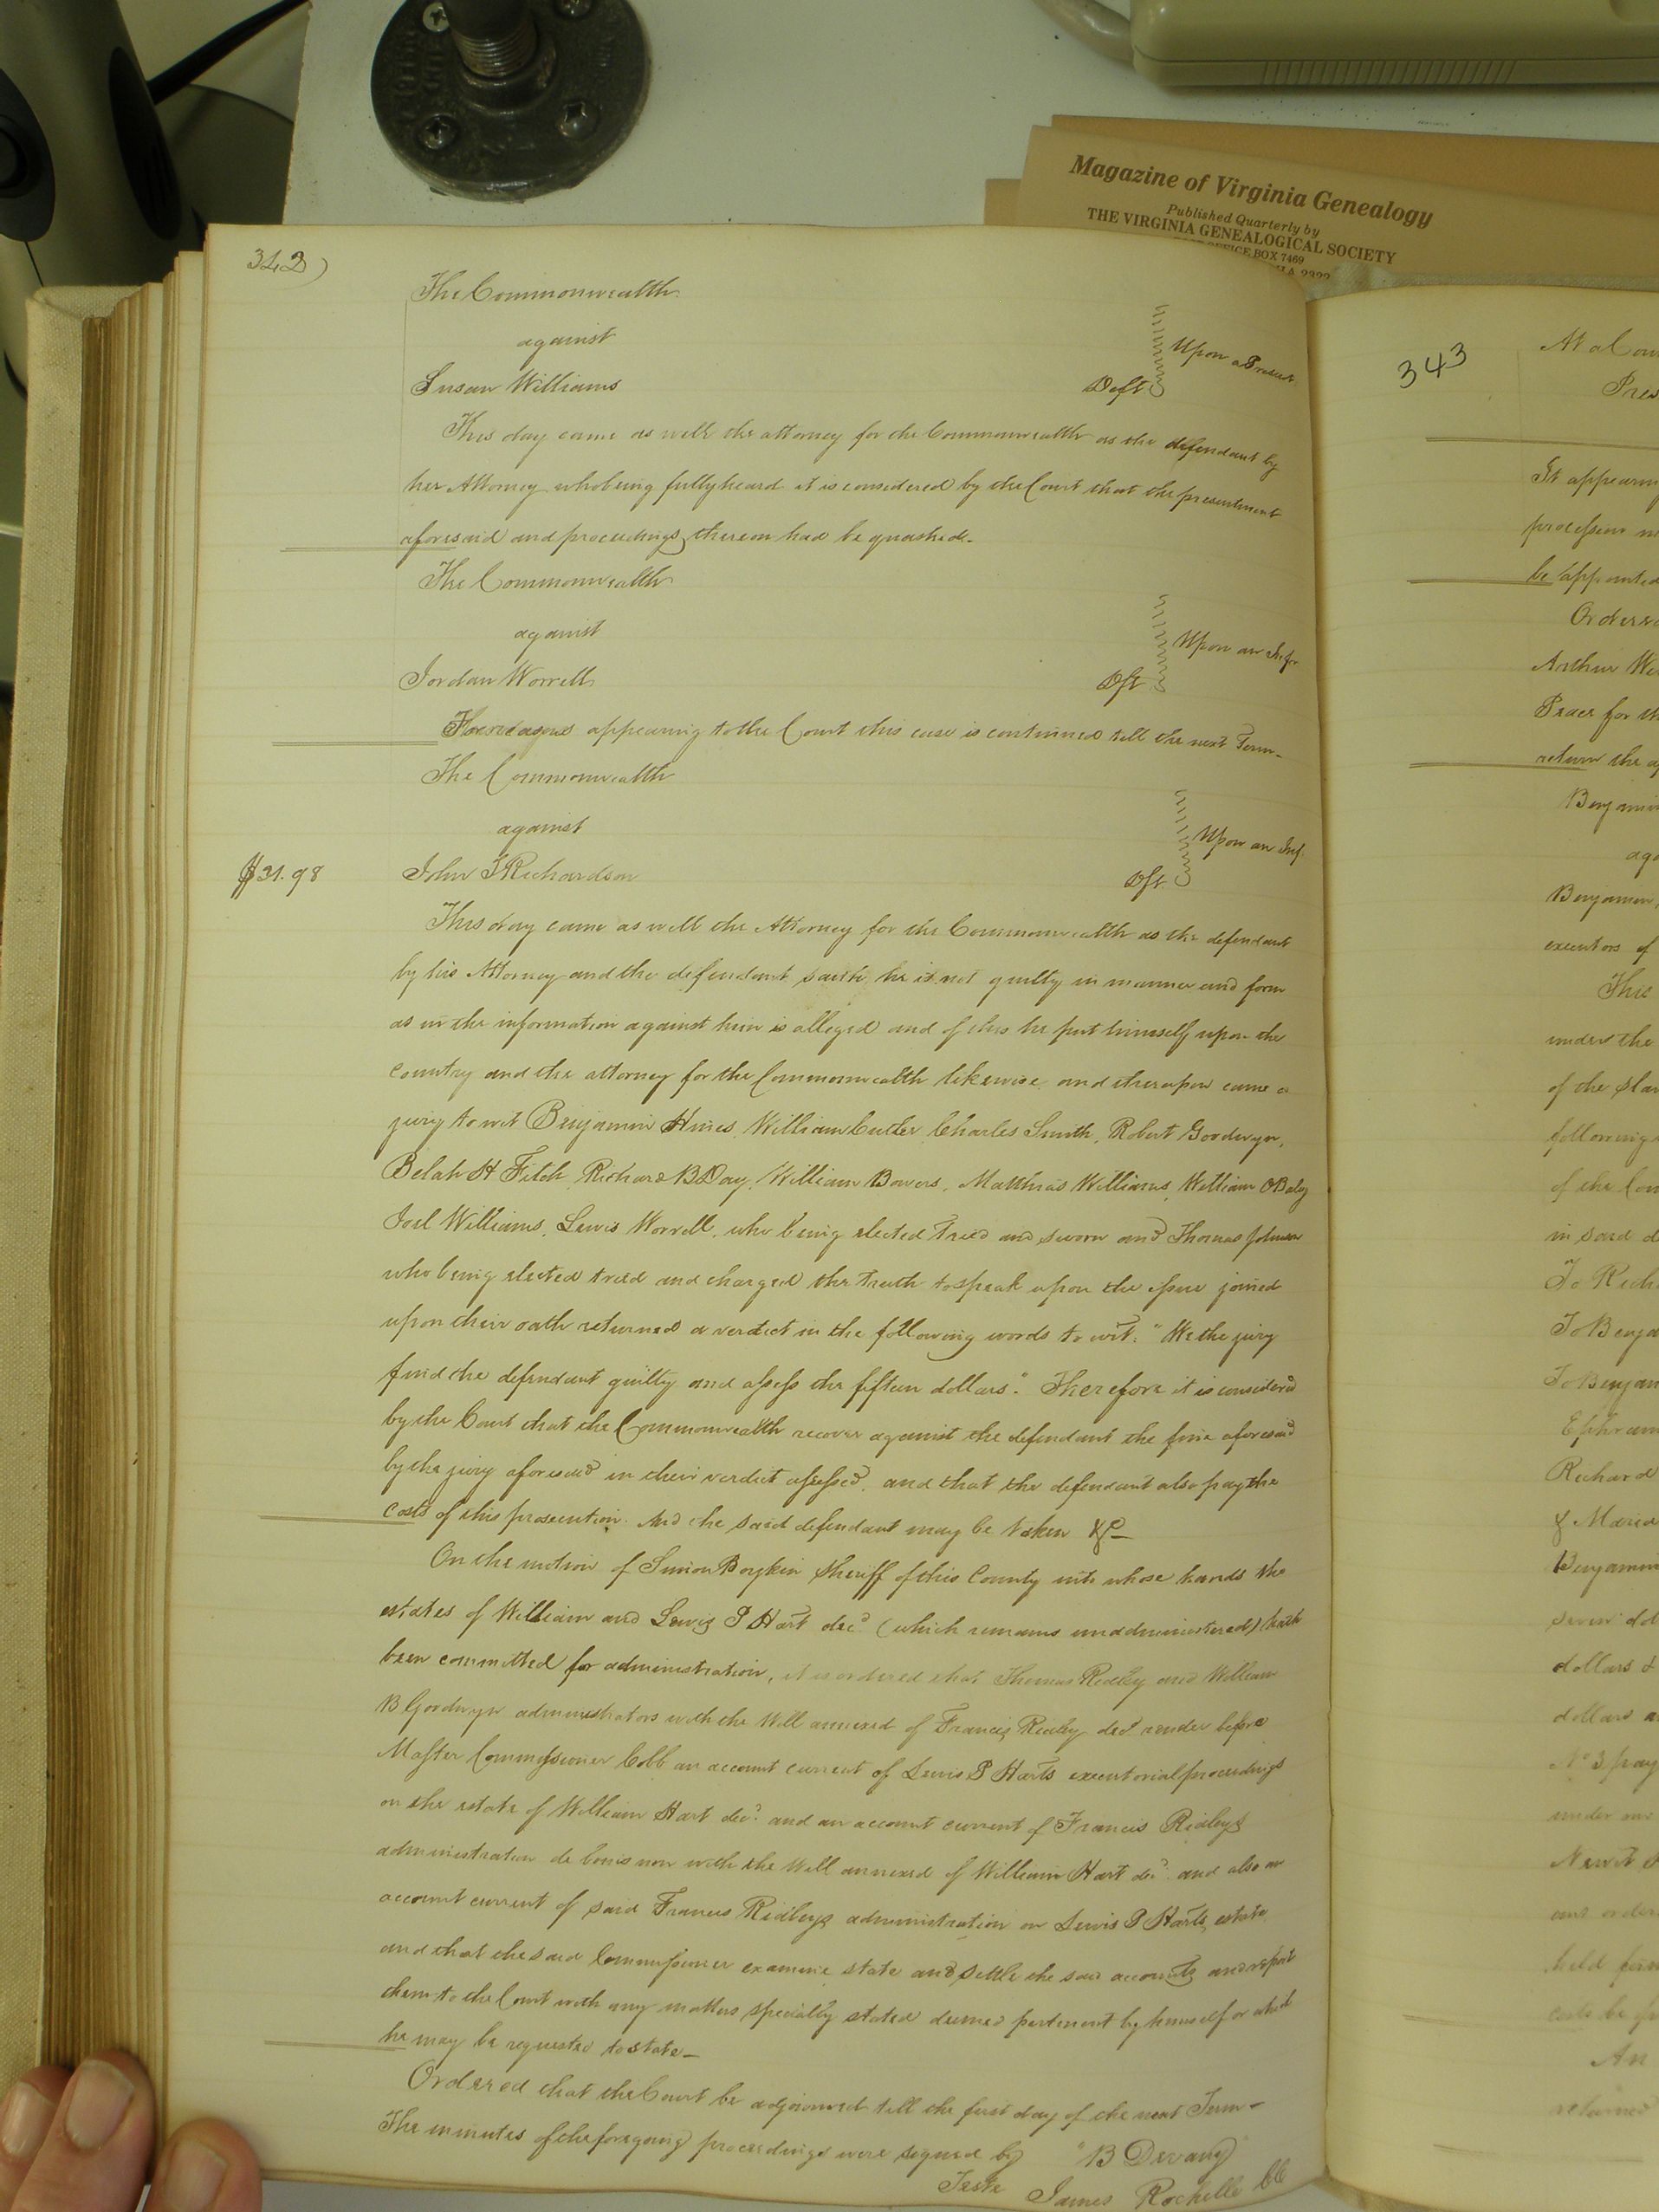 Magazine of Virginia Genealogy
Published Quarterly by
THE VIRGINIA GENEALOGICAL SOCIETY
OFFICE BOX 7469
342)
The Commonwealth
against
Susan Williams Deft Upon a Present
This day came as well the attorney for the Commonwealth as the defendant by
her Attorney who being fully heard it is considered by the Court that the presentment
aforesaid and proceedings thereon had be quashed.
The Commonwealth
against Upon an Infor
Jordan Worrell Dft
For reasons appearing to the Court this case is continued till the next Term
The Commonwealth
against Upon an Inf.
$31.98 John T Richardson Dft
This day came as well the Attorney for the Commonwealth as the defendant
by his Attorney and the defendant saith he is not guilty in manner and form
as in the information against him is alleged and of this he put himself upon the
country and the attorney for the Commonwealth likewise and thereupon came a
jury to wit Benjamin Hines, William Butler, Charles Smith, Robert Goodwyn,
Belah H Fitch, Richard B Day, William Bowers, Matthias Williams, William O
Joel Williams, Lewis Worrell, who being elected tried and sworn and Thomas Johnson
who being elected tried and charged the truth to speak upon the issue joined
upon their oath returned a verdict in the following words to wit: "We the jury
find the defendant guilty and assess the fifteen dollars". Therefore it is considered
by the Court that the Commonwealth recover against the defendant the fine aforesaid
by the jury aforesaid in their verdict assessed, and that the defendant also pay the
costs of this prosecution. And the said defendant may be taken &c
On the motion of Simon Boykin Sheriff of this County into whose hands the
estates of William and Lewis P Hart decd (which remains unadministered) hath
been committed for administration, it is ordered that Thomas Ridley and William
B Goodwyn administrators with the Will annexed of Francis Ridley decd render before
Master Commissioner Cobb an account current of Lewis P Harts executorial proceedings
on the estate of William Hart decd and an account current of Francis Ridleys
administration de bonis non with the Will annexed of William Hart decd and also an
account current of said Francis Ridleys administration on Lewis P Harts estate
and that the said Commissioner examine state and settle the said accounts and report
them to the Court with any matters specially stated deemed pertinent by himself or which
he may be requested to state
Ordered that the Court be adjourned till the first day of the next Term
The minutes of the foregoing proceedings were signed by "B Devany"
Teste James Rochelle CC
343
At a Cour
Pres
It appearing
profession
be appointed
Ordered
Arthur
Peace for th
return the
Benjamin
aga
Benjamin
executors of
This
under the
of the Slav
following
of the Com
in said d
To Rich
To Benja
To Benjam
Ephraim
Richard
& Maria
Benjamin
seven dol
dollars &
dollars a
No 3 pay
under
Newit
and order
held
An
returned